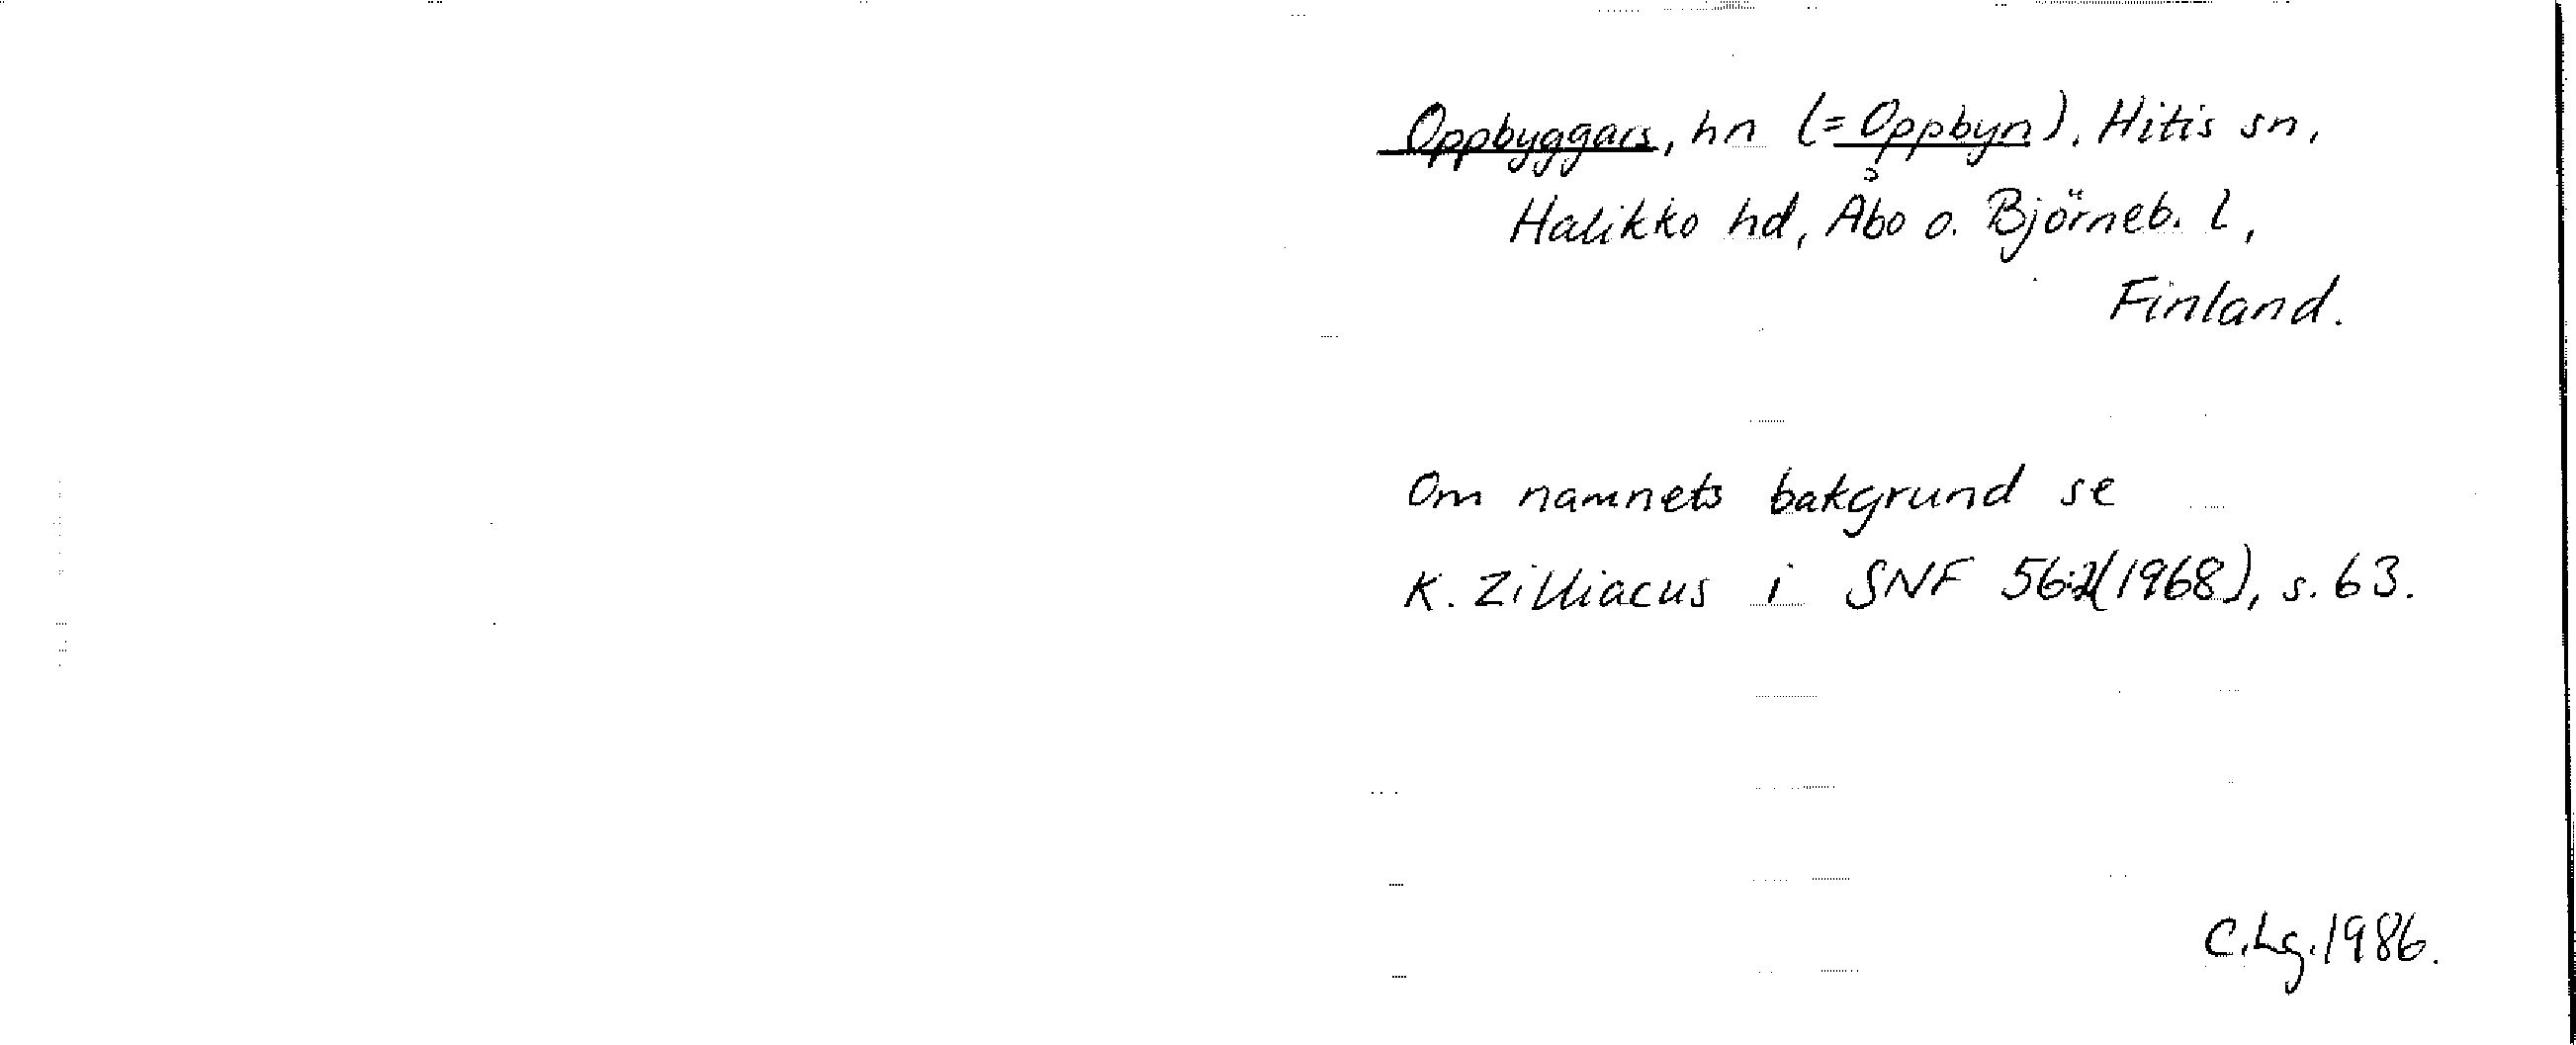 Oppbyggars, hn (= Oppbyn). Hitis sn,
Halikko hd, Åbo o. Björneb. l,
Finland.
Om namnets bakgrund se
K. Zilliacus i SNF 56:2(1968), s. 63.
C.Lg.1986.